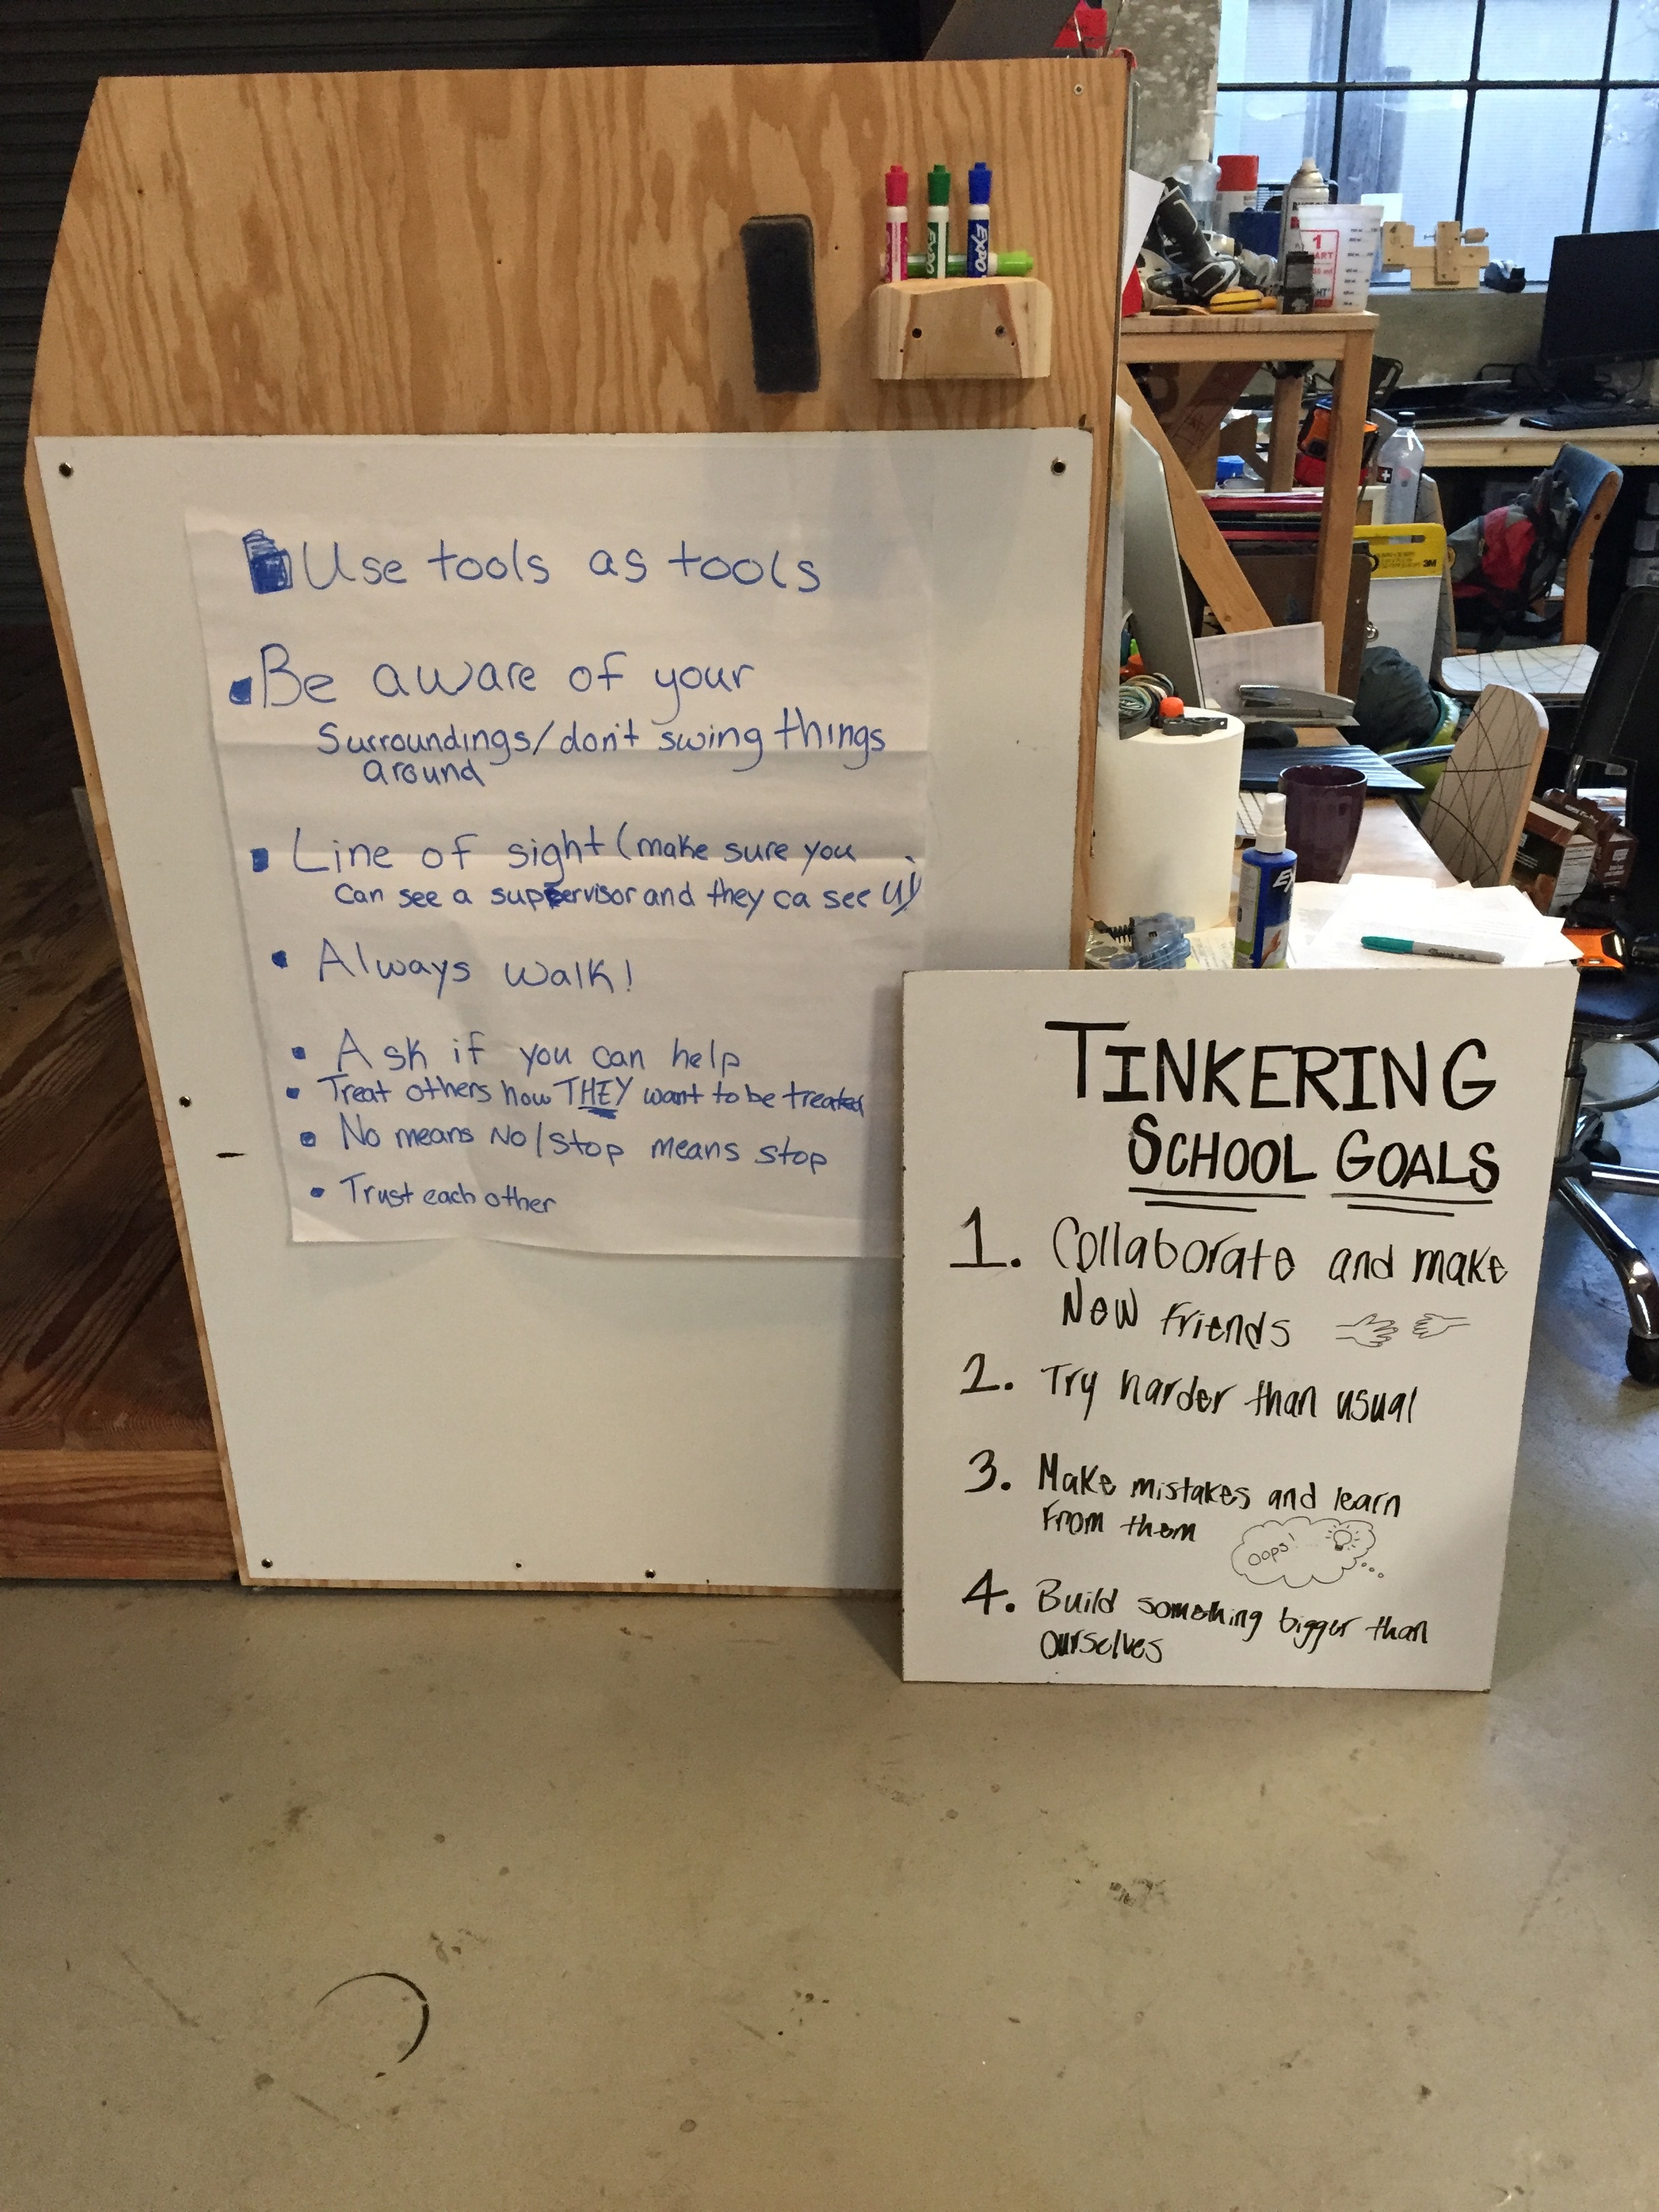 Use tools as tools
Be aware of your
Surroundings/don't swing things
around
Line of sight (make sure you
can see a suppervisor and they ca see u)
Always walk!
Ask if you can help
Treat others how THEY want to be treated
No means No/stop means stop
Trust each other
TINKERING
SCHOOL GOALS
1. Collaborate and make
New friends
2. Try harder than usual
3. Make mistakes and learn
from them
Oops!
4. Build something bigger than
ourselves
EXPO
EXPO
1
3M